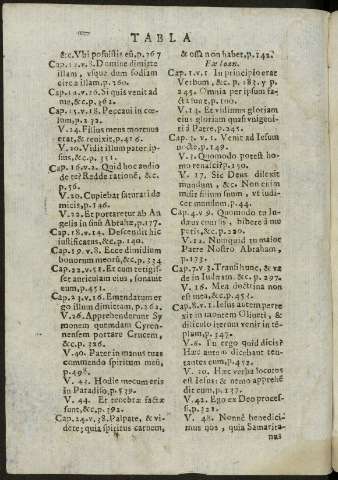 TABLA
&c. Vbi posuistis eū, p. 267
Cap. 12. v. 8. Domine dimitte
illam, vsque dum fodiam
circa illam, p. 260.
Cap. 14. v. 26. Si quis venit ad
me, &c. p. 362.
Cap. 15. v. 18. Peccaui in cœ-
lum, p. 232.
V. 24. Filius meus mortuus
erat, & reuixit, p. 416.
V. 20. Vidit illum pater ip-
sius, &c. p. 351.
Cap. 16. v. 2. Quid hoc audio
de te? Redde rationē, &c.
p. 56.
V. 20. Cupiebat saturari de
micis, p. 146.
V. 22. Et portaretur ab An
gelis in sinū Abrahę, p. 127.
Cap. 18. v. 14. Descendit hic
iustificatus, &c. p. 140.
Cap. 19. v. 8. Ecce dimidium
bonorum meorū, &c. p. 334
Cap. 22. v. 51. Et cum tetigis-
set auriculam eius, sanauit
eum, p. 451.
Cap. 23. v. 16. Emendatum er
go illum dimittam, p. 262.
V. 26. Apprehenderunt Sy
monem quemdam Cyren-
nensem portare Crucem,
&c. p. 326.
V. 40. Pater in manus tuas
commendo spiritum meū,
p. 498.
V. 43. Hodie mecum eris
in Paradiso, p. 539.
V. 44. Et tenebræ factæ
sunt, &c. p. 392.
Cap. 24. v. 38. Palpate, & vi-
dete; quia spiritus carnem,
& ossa non habet, p. 142.
Ex Ioan.
Cap. 1. v. 1. In principio erat
Verbum, &c. p. 183. y p.
245. Omnia per ipsum fa-
cta sunt, p. 100.
V. 14. Et vidimus gloriam
eius gloriam quasi vnigeni-
ti à Patre, p. 245.
Cap. 3. v. 1. Venit ad Iesum
nocte, p. 149.
V. 3. Quomodo potest ho-
mo renasci? p. 150.
V. 17. Sic Deus dilexit
mundum, &c. Non enim
misit filium suum, vt iudi-
cet mundum, p. 44.
Cap. 4. v. 9. Quomodo tu Iu-
dæus cum sis, bibere à me
petis, &c. p. 220.
V. 12. Nunquid tu maior
Patre Nostro Abraham,
p. 173.
Cap. 7. v. 3. Transi hunc, & va
de in Iudæam. &c. p. 297.
V. 16. Mea doctrina non
est mea, &c. p. 453.
Cap. 8. v. 1. Iesus autem perre
xit in montem Oliueti, &
diluculo iterum venit in tē-
plum, p. 347.
V. 6. Tu ergo quid dicis?
Hæc autem dicebant ten-
tantes eum, p. 452.
V. 20. Hæc verba locutus
est Iesus: & nemo apprehē
dit eum, p. 237.
V. 42. Ego ex Deo proces-
si, p. 321.
V. 48. Nonnè benedici-
mus nos, quia Samarita-
nus